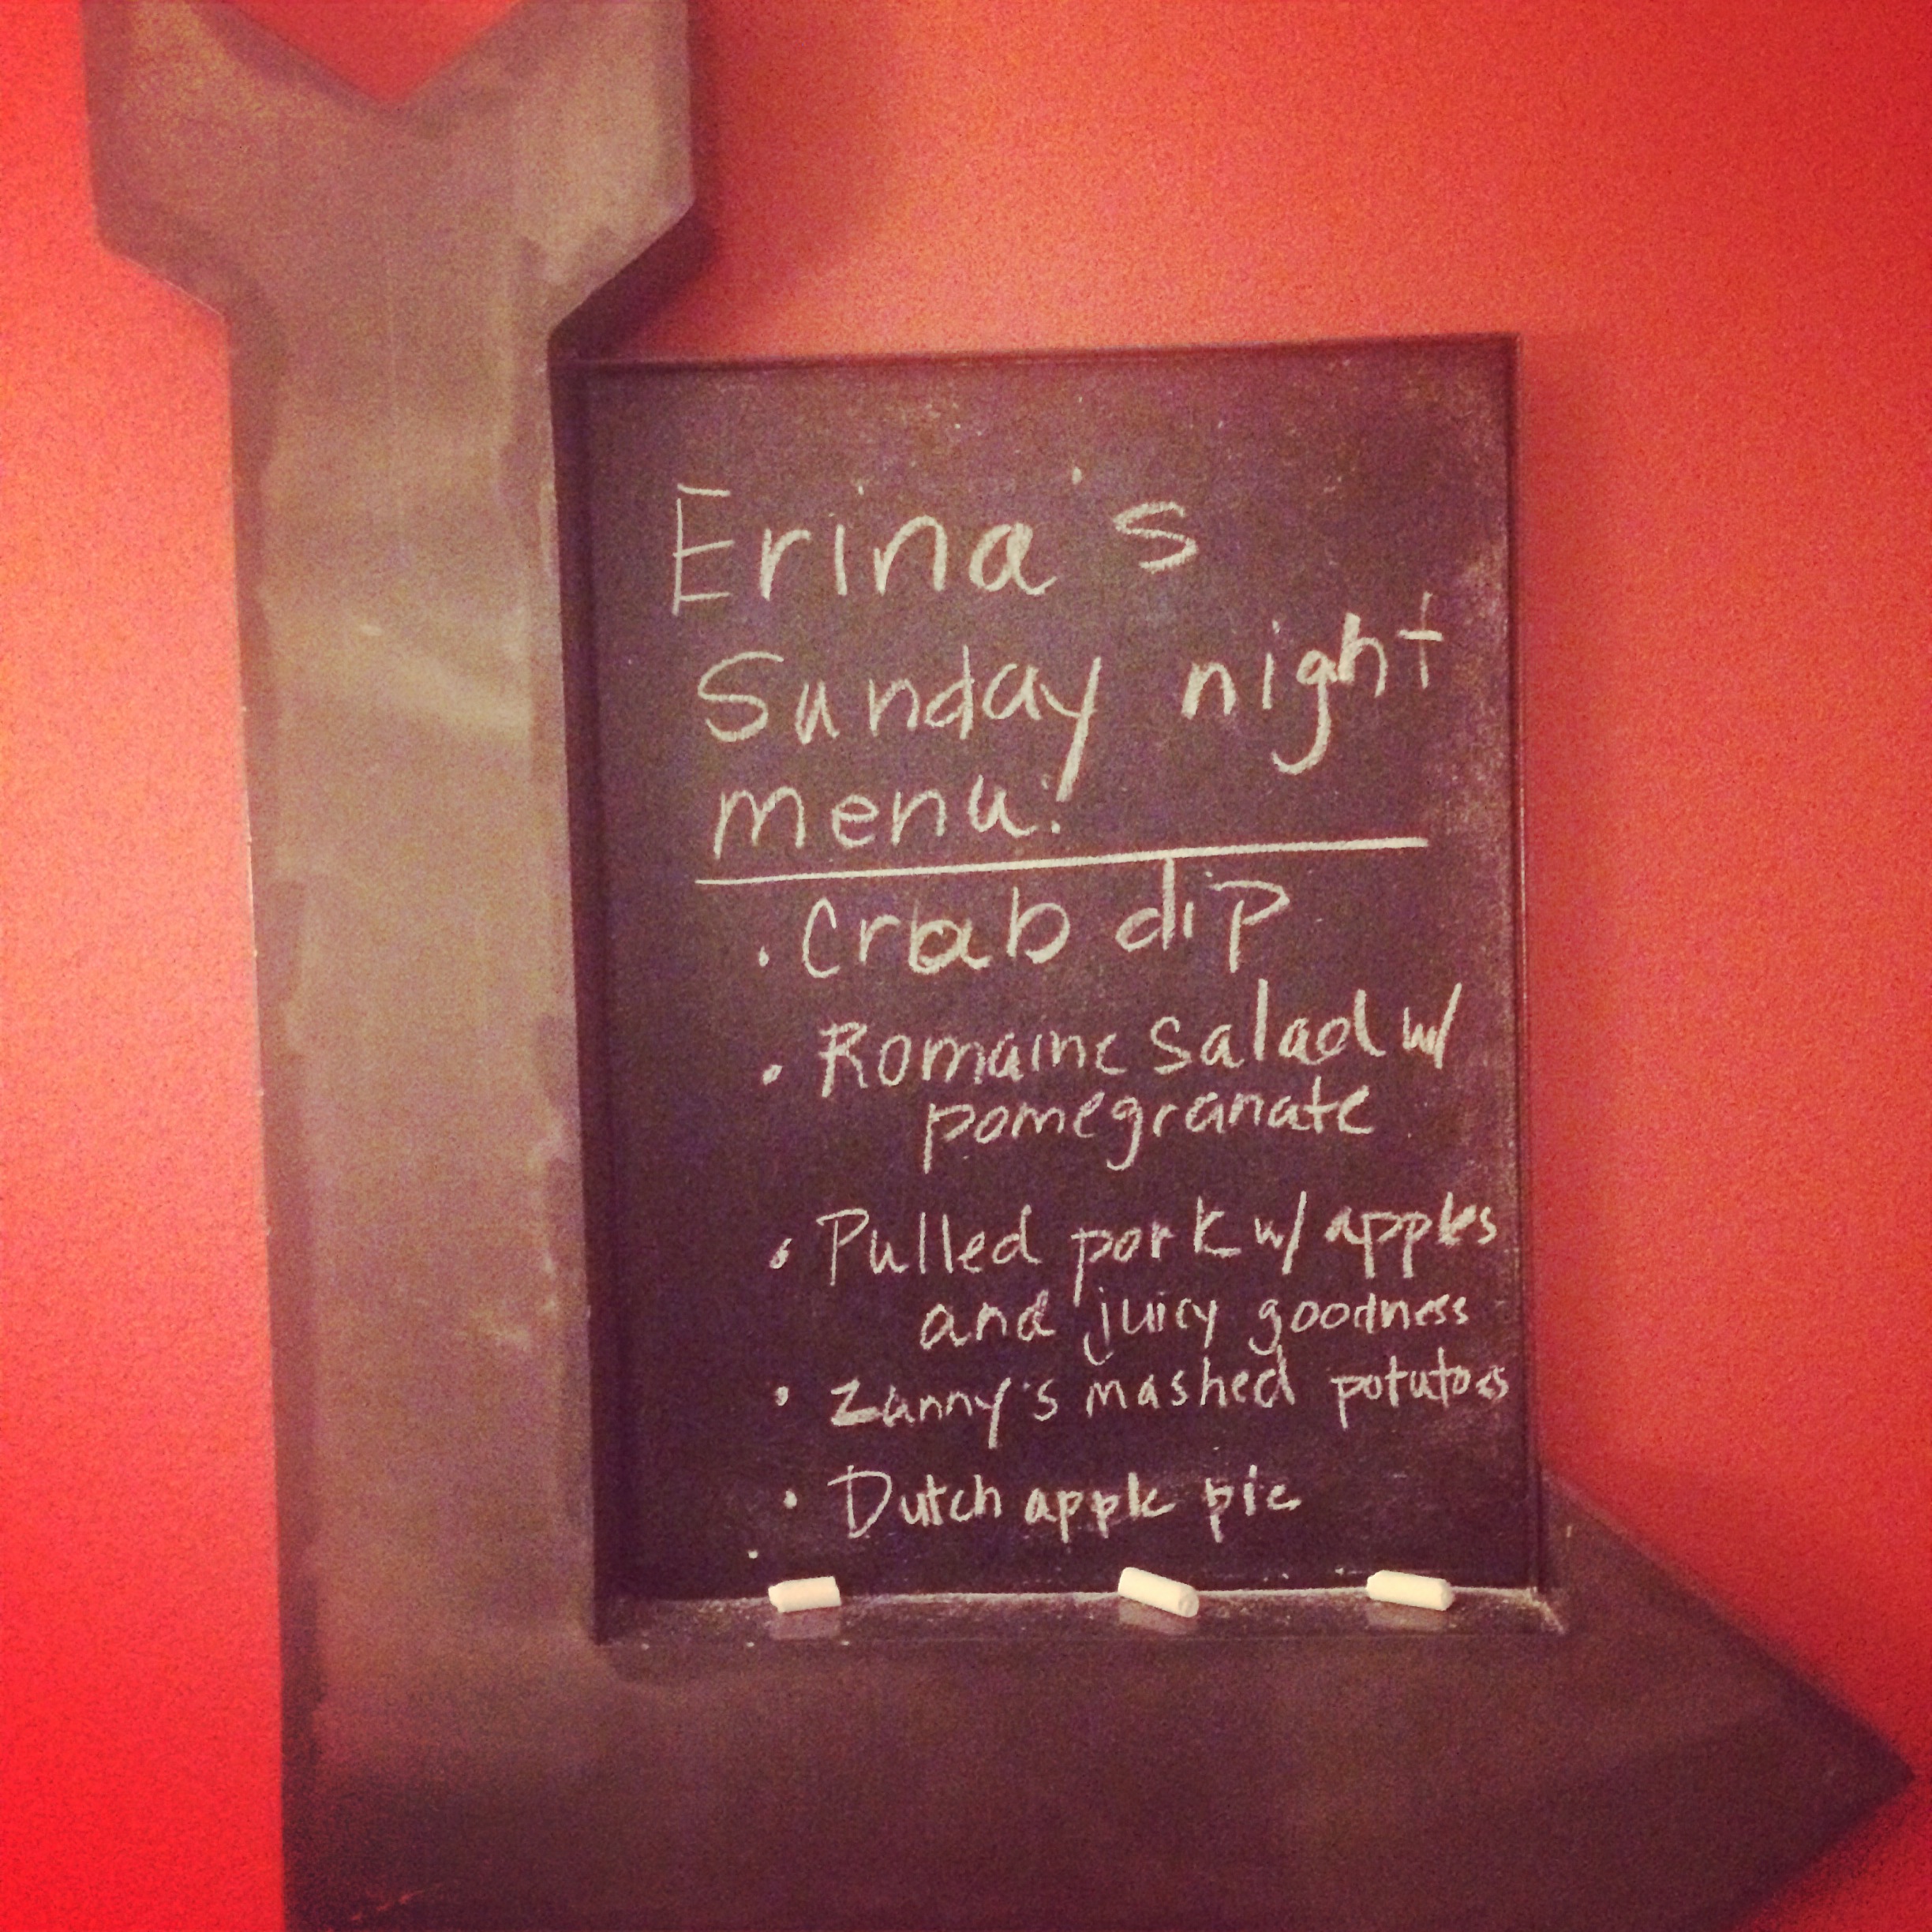 Erina's
Sunday night
menu:
· Crab dip
· Romaine salad w/
pomegranate
· Pulled pork w/ apples
and juicy goodness
· Zanny's mashed potatoes
· Dutch apple pie